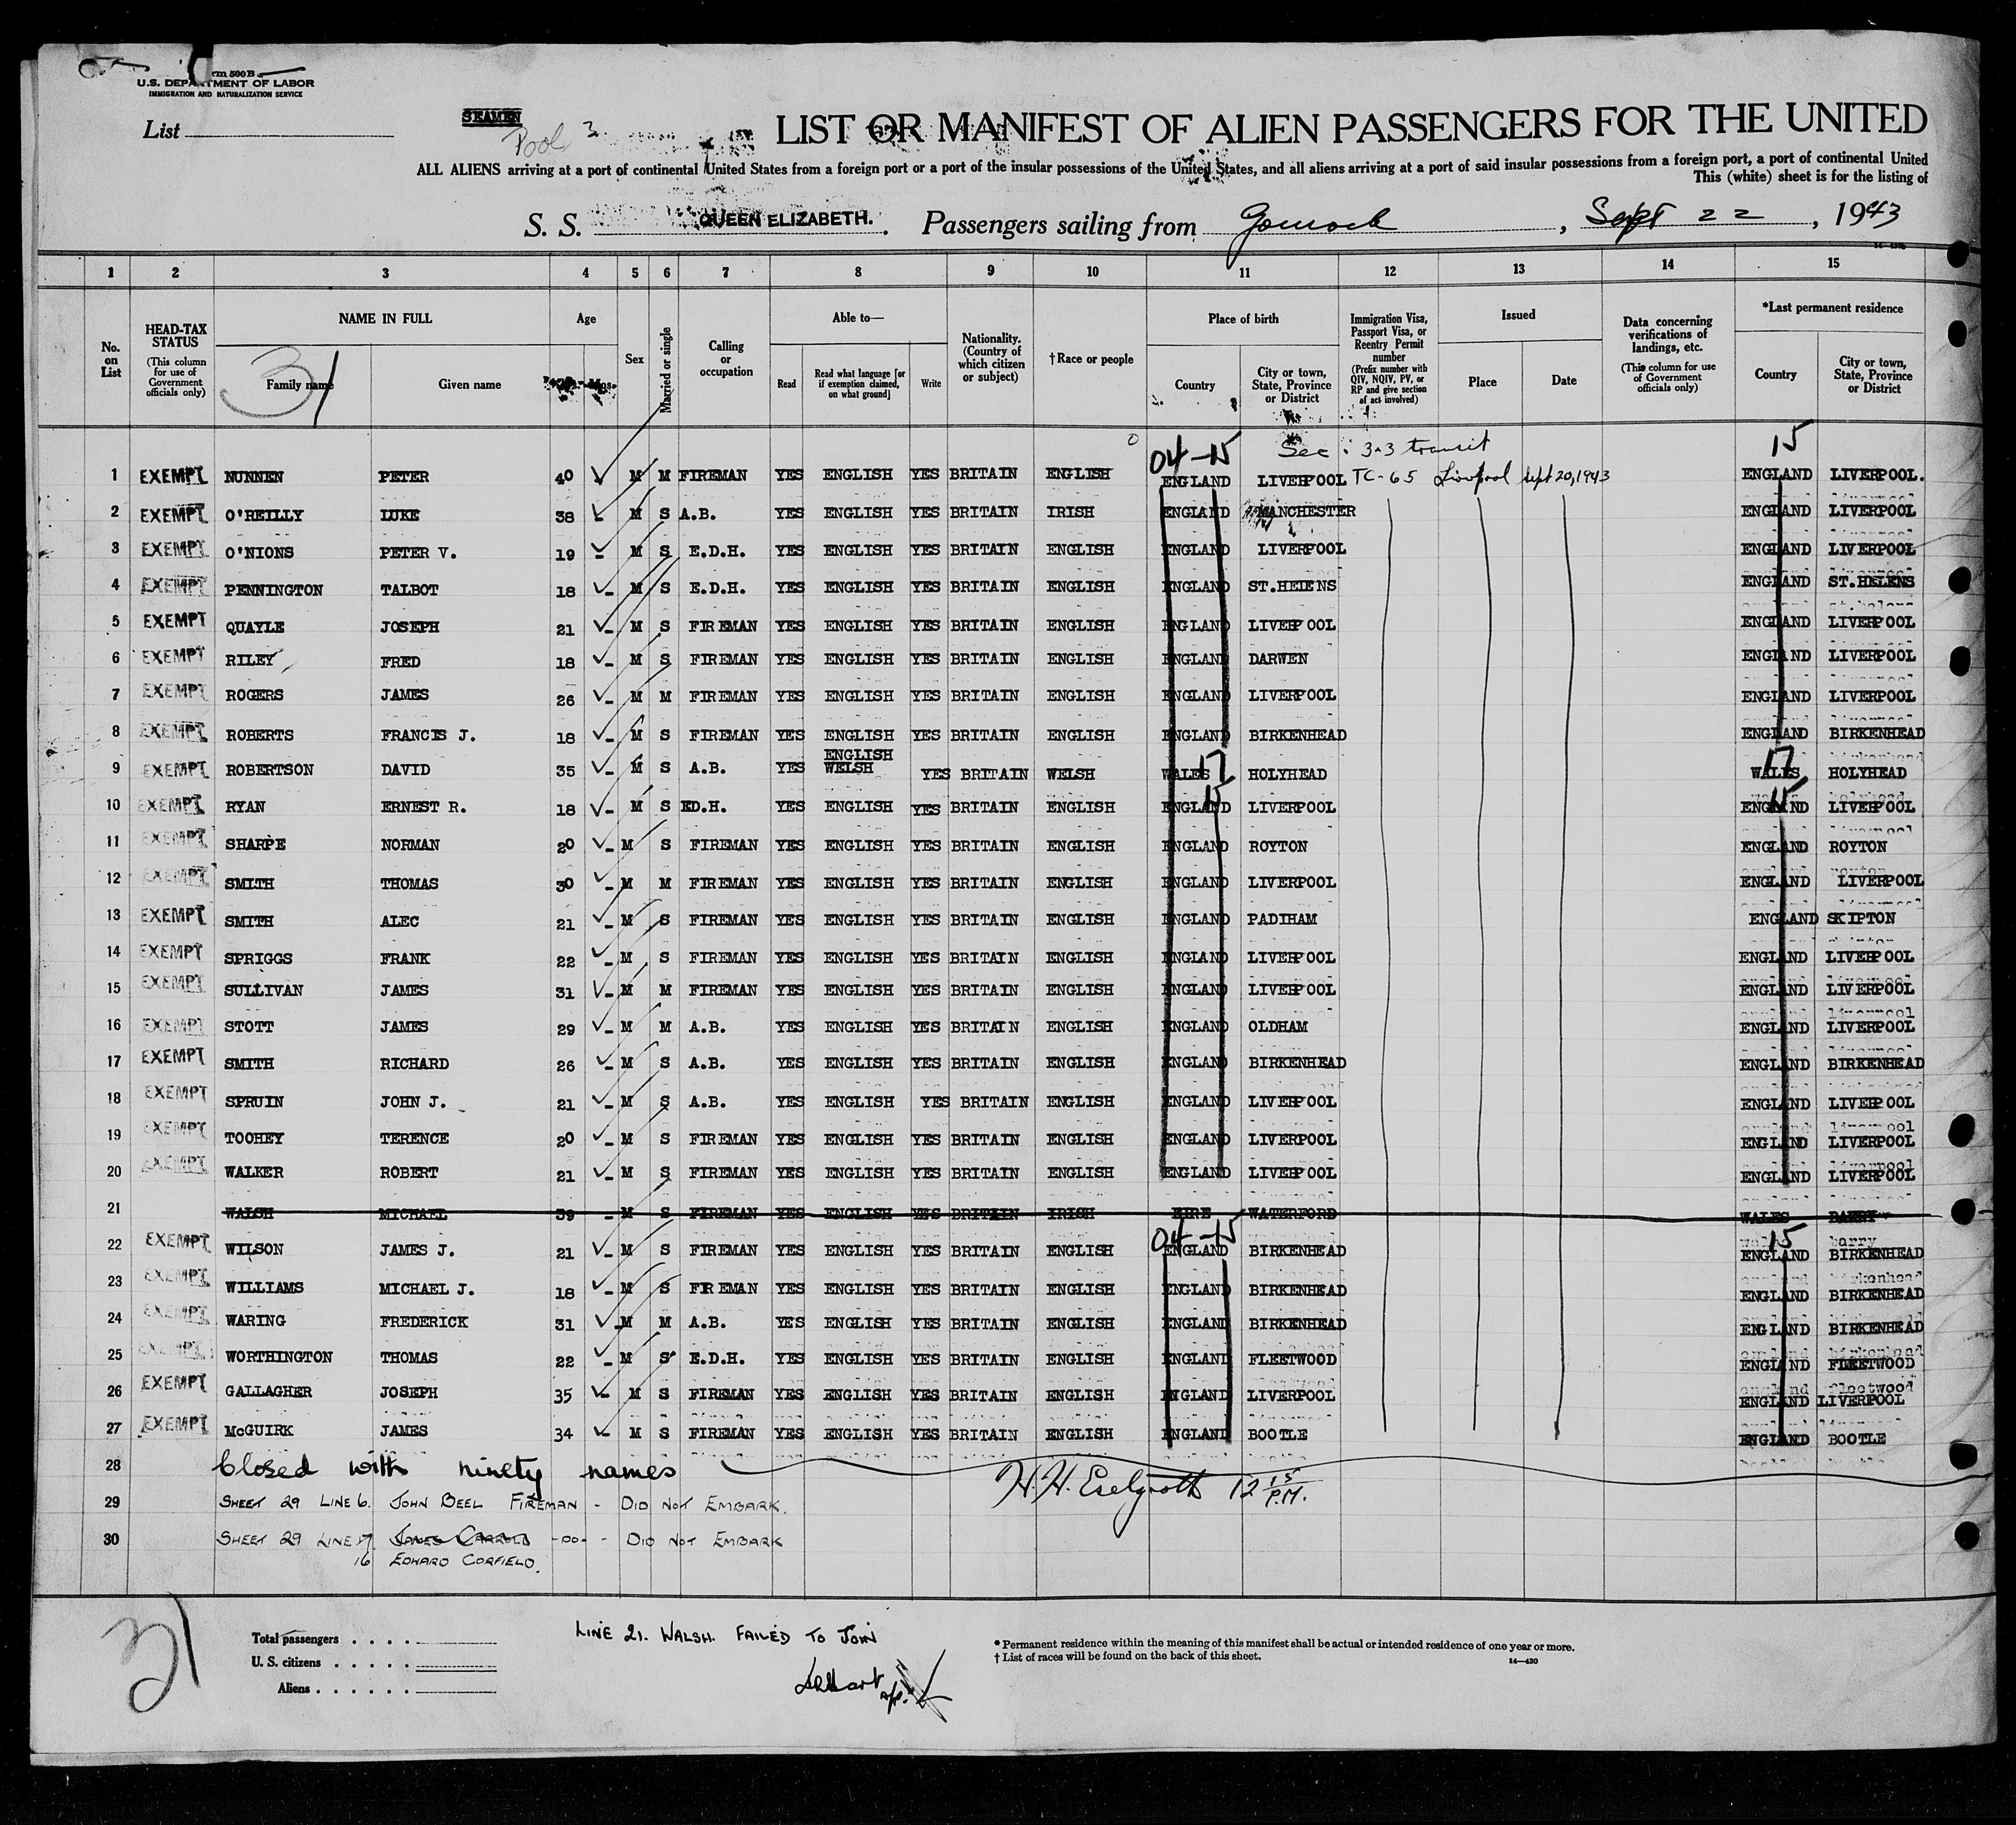 Form 500 B
U.S. DEPARTMENT OF LABOR
IMMIGRATION AND NATURALIZATION SERVICE
List
SEAMEN
Pool 3
LIST OR MANIFEST OF ALIEN PASSENGERS FOR THE UNITED
ALL ALIENS arriving at a port of continental United States from a foreign port or a port of the insular possessions of the United States, and all aliens arriving at a port of said insular possessions from a foreign port, a port of continental United
This (white) sheet is for the listing of
S. S. QUEEN ELIZABETH. Passengers sailing from Gourock, Sept 22, 1943
1 2 3 4 5 6 7 8 9 10 11 12 13 14 15
No. on List
HEAD-TAX STATUS (This column for use of Government officials only)
NAME IN FULL Family name Given name
31
Age Yrs. Mos.
Sex
Married or single
Calling or occupation
Able to— Read Read what language [or if exemption claimed, on what ground] Write
Nationality. (Country of which citizen or subject)
†Race or people
Place of birth Country City or town, State, Province or District
Immigration Visa, Passport Visa, or Reentry Permit number (Prefix number with QIV, NQIV, PV, or RP and give section of act involved)
Issued Place Date
Data concerning verifications of landings, etc. (This column for use of Government officials only)
*Last permanent residence Country City or town, State, Province or District
04-15 Sec: 3-3 transit 15
1 EXEMPT NUNNEN PETER 40 M M FIREMAN YES ENGLISH YES BRITAIN ENGLISH ENGLAND LIVERPOOL TC-65 Liverpool Sept 20, 1943 ENGLAND LIVERPOOL.
2 EXEMPT O'REILLY LUKE 38 M S A.B. YES ENGLISH YES BRITAIN IRISH ENGLAND MANCHESTER ENGLAND LIVERPOOL
3 EXEMPT O'NIONS PETER V. 19 M S E.D.H. YES ENGLISH YES BRITAIN ENGLISH ENGLAND LIVERPOOL ENGLAND LIVERPOOL
4 EXEMPT PENNINGTON TALBOT 18 M S E.D.H. YES ENGLISH YES BRITAIN ENGLISH ENGLAND ST.HELENS ENGLAND ST.HELENS
5 EXEMPT QUAYLE JOSEPH 21 M S FIREMAN YES ENGLISH YES BRITAIN ENGLISH ENGLAND LIVERPOOL ENGLAND LIVERPOOL
6 EXEMPT RILEY FRED 18 M S FIREMAN YES ENGLISH YES BRITAIN ENGLISH ENGLAND DARWEN ENGLAND LIVERPOOL
7 EXEMPT ROGERS JAMES 26 M M FIREMAN YES ENGLISH YES BRITAIN ENGLISH ENGLAND LIVERPOOL ENGLAND LIVERPOOL
8 EXEMPT ROBERTS FRANCIS J. 18 M S FIREMAN YES ENGLISH YES BRITAIN ENGLISH ENGLAND BIRKENHEAD ENGLAND BIRKENHEAD
9 EXEMPT ROBERTSON DAVID 35 M S A.B. YES ENGLISH WELSH YES BRITAIN WELSH WALES 17 HOLYHEAD WALES 17 HOLYHEAD
10 EXEMPT RYAN ERNEST R. 18 M S ED.H. YES ENGLISH YES BRITAIN ENGLISH ENGLAND 15 LIVERPOOL ENGLAND 15 LIVERPOOL
11 EXEMPT SHARPE NORMAN 20 M S FIREMAN YES ENGLISH YES BRITAIN ENGLISH ENGLAND ROYTON ENGLAND ROYTON
12 EXEMPT SMITH THOMAS 30 M M FIREMAN YES ENGLISH YES BRITAIN ENGLISH ENGLAND LIVERPOOL ENGLAND LIVERPOOL
13 EXEMPT SMITH ALEC 21 M S FIREMAN YES ENGLISH YES BRITAIN ENGLISH ENGLAND PADIHAM ENGLAND SKIPTON
14 EXEMPT SPRIGGS FRANK 22 M S FIREMAN YES ENGLISH YES BRITAIN ENGLISH ENGLAND LIVERPOOL ENGLAND LIVERPOOL
15 EXEMPT SULLIVAN JAMES 31 M M FIREMAN YES ENGLISH YES BRITAIN ENGLISH ENGLAND LIVERPOOL ENGLAND LIVERPOOL
16 EXEMPT STOTT JAMES 29 M M A.B. YES ENGLISH YES BRITAIN ENGLISH ENGLAND OLDHAM ENGLAND LIVERPOOL
17 EXEMPT SMITH RICHARD 26 M S A.B. YES ENGLISH YES BRITAIN ENGLISH ENGLAND BIRKENHEAD ENGLAND BIRKENHEAD
18 EXEMPT SPRUIN JOHN J. 21 M S A.B. YES ENGLISH YES BRITAIN ENGLISH ENGLAND LIVERPOOL ENGLAND LIVERPOOL
19 EXEMPT TOOHEY TERENCE 20 M S FIREMAN YES ENGLISH YES BRITAIN ENGLISH ENGLAND LIVERPOOL ENGLAND LIVERPOOL
20 EXEMPT WALKER ROBERT 21 M S FIREMAN YES ENGLISH YES BRITAIN ENGLISH ENGLAND LIVERPOOL ENGLAND LIVERPOOL
21 WALSH MICHAEL 39 M S FIREMAN YES ENGLISH YES BRITAIN IRISH EIRE WATERFORD WALES BARRY
04-15 15
22 EXEMPT WILSON JAMES J. 21 M S FIREMAN YES ENGLISH YES BRITAIN ENGLISH ENGLAND BIRKENHEAD ENGLAND BIRKENHEAD
23 EXEMPT WILLIAMS MICHAEL J. 18 M S FIREMAN YES ENGLISH YES BRITAIN ENGLISH ENGLAND BIRKENHEAD ENGLAND BIRKENHEAD
24 EXEMPT WARING FREDERICK 31 M M A.B. YES ENGLISH YES BRITAIN ENGLISH ENGLAND BIRKENHEAD ENGLAND BIRKENHEAD
25 EXEMPT WORTHINGTON THOMAS 22 M S E.D.H. YES ENGLISH YES BRITAIN ENGLISH ENGLAND FLEETWOOD ENGLAND FLEETWOOD
26 EXEMPT GALLAGHER JOSEPH 35 M S FIREMAN YES ENGLISH YES BRITAIN ENGLISH ENGLAND LIVERPOOL ENGLAND LIVERPOOL
27 EXEMPT McGUIRK JAMES 34 M S FIREMAN YES ENGLISH YES BRITAIN ENGLISH ENGLAND BOOTLE ENGLAND BOOTLE
28 Closed with ninety names H.H. Eselgroth 12 15 P.M.
29 SHEET 29 LINE 6. JOHN BEEL FIREMAN - DID NOT EMBARK.
30 SHEET 29 LINE 17. JAMES CARROLL -DO- - DID NOT EMBARK
16 EDWARD CORFIELD.
31
Total passengers
U. S. citizens
Aliens
LINE 21. WALSH. FAILED TO JOIN
* Permanent residence within the meaning of this manifest shall be actual or intended residence of one year or more.
† List of races will be found on the back of this sheet.
14—430